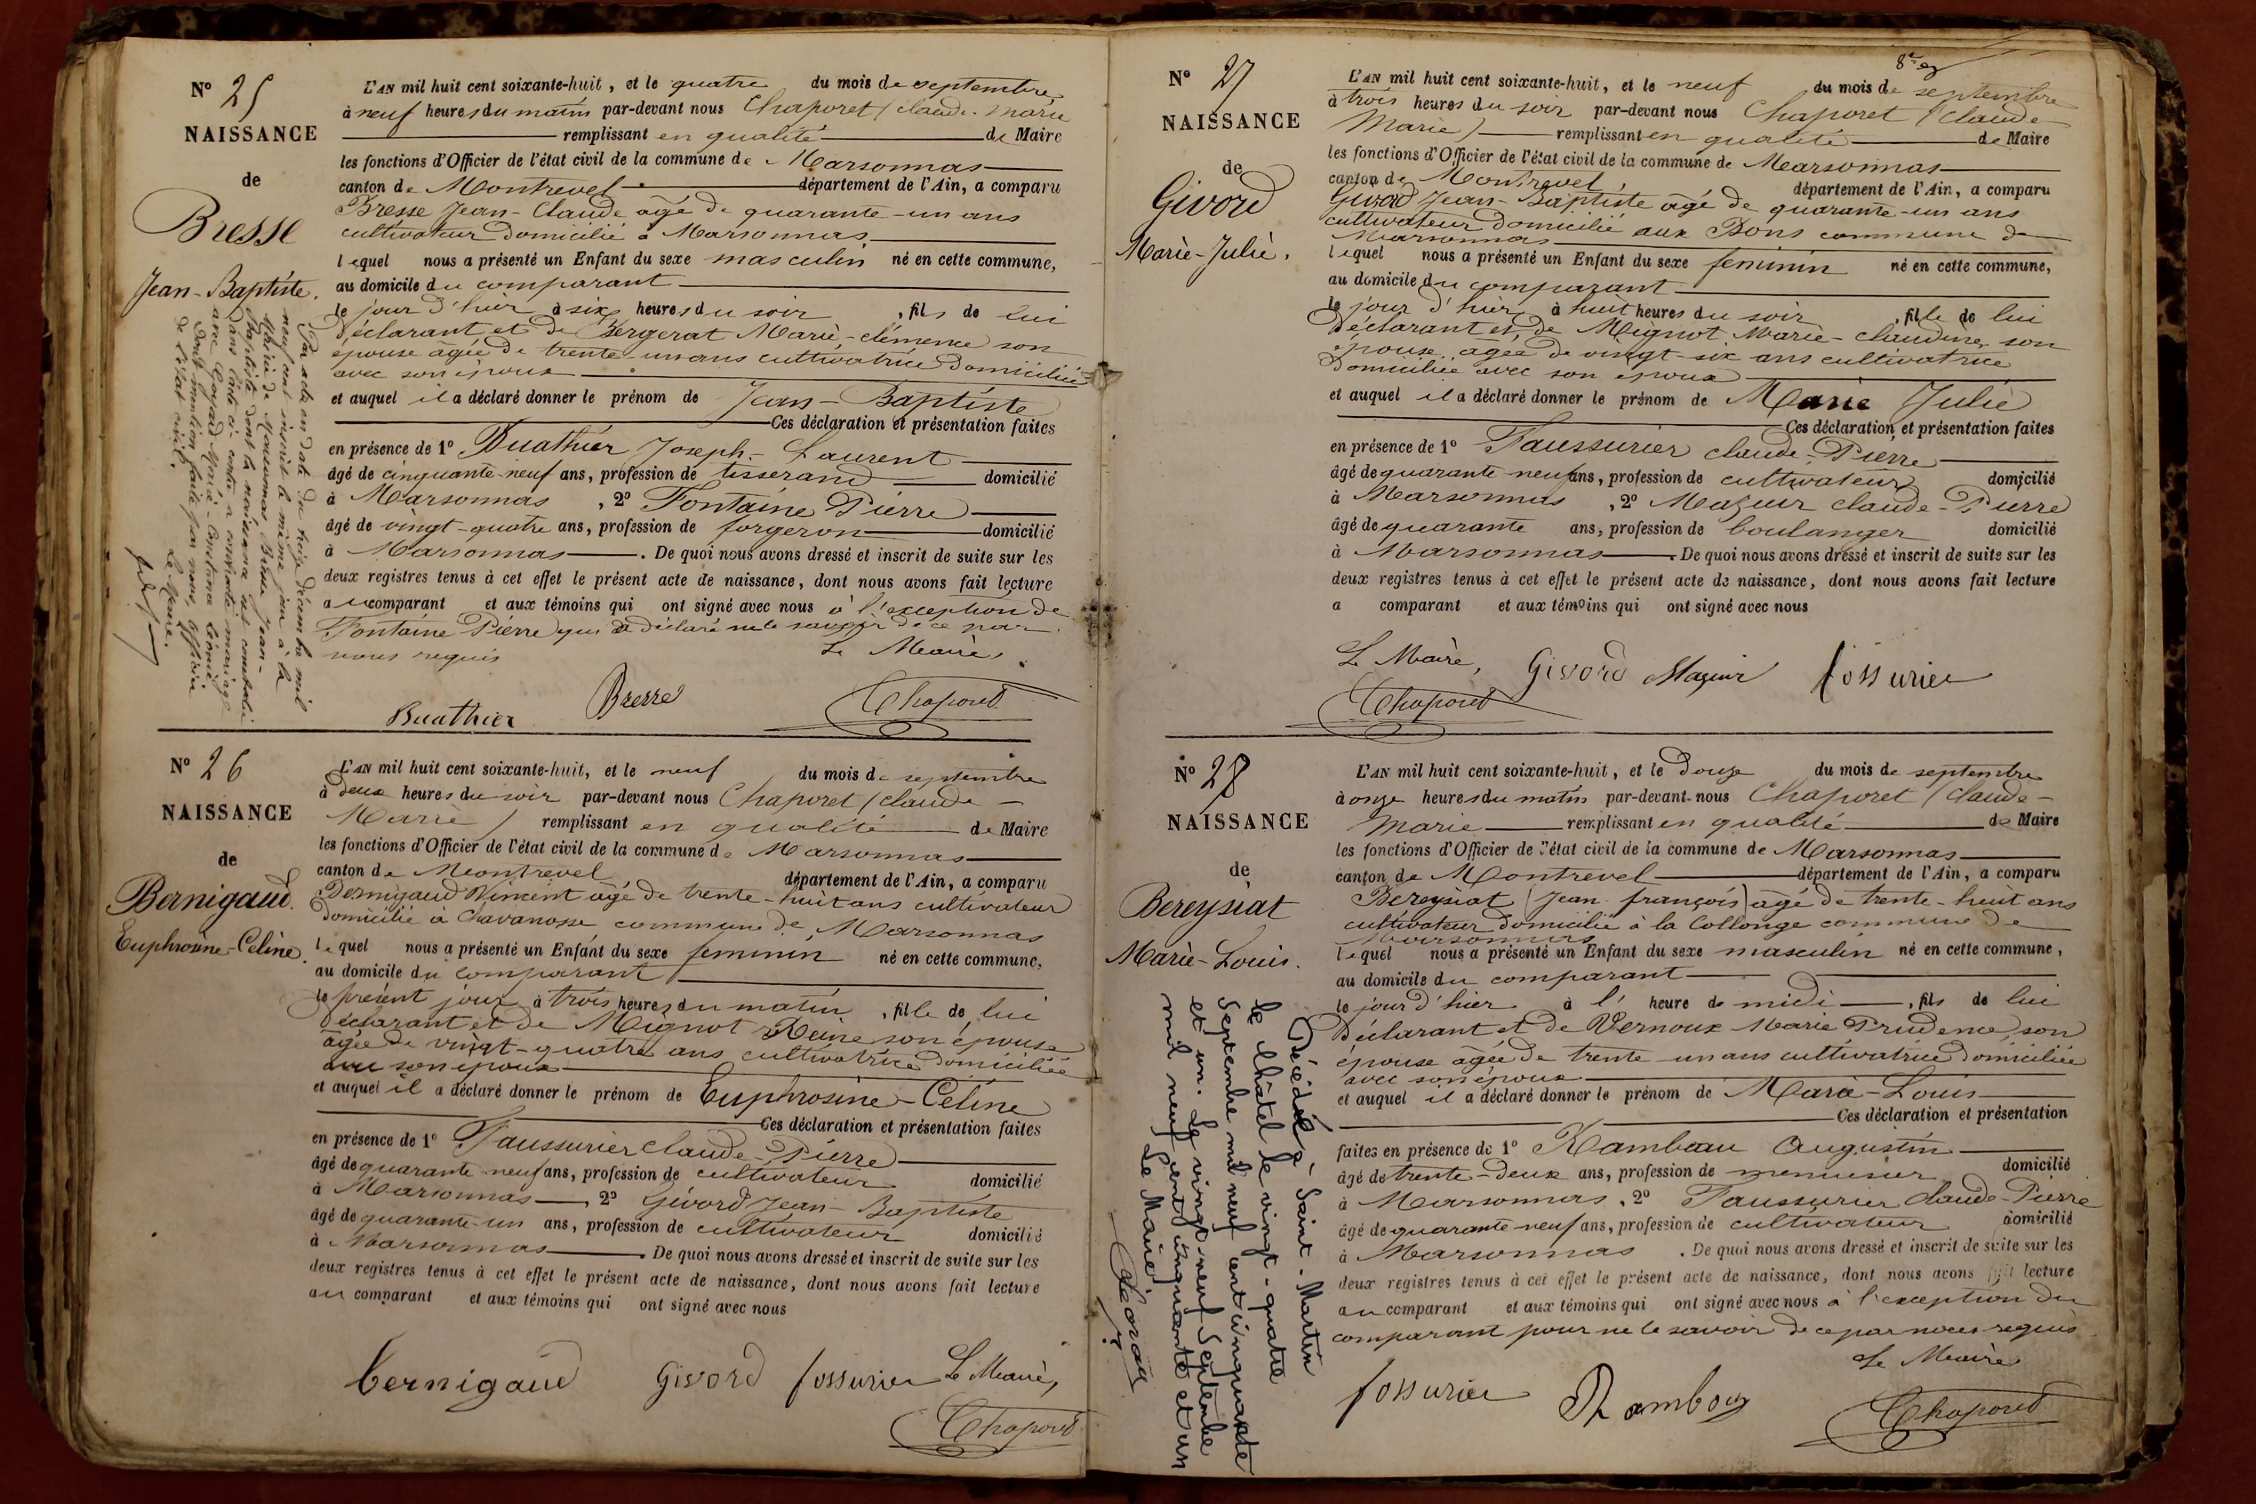 N° 25
NAISSANCE
de
Bresse
Jean-Baptiste.
L'AN mil huit cent soixante-huit, et le quatre du mois de septembre
à neuf heures du matin par-devant nous Chaporet (Claude-Marie
remplissant en qualité de Maire
les fonctions d'Officier de l'état civil de la commune de Marsonnas
canton de Montrevel département de l'Ain, a comparu
Bresse Jean-Claude agé de quarante-un ans
cultivateur domicilié à Marsonnas
lequel nous a présenté un Enfant du sexe masculin né en cette commune,
au domicile du comparant
le jour d'hier à six heures du soir, fils de lui
déclarant et de Bergerat Marie-clémence son
épouse agée de trente-un ans cultivatrice domiciliée
avec son époux
et auquel il a déclaré donner le prénom de Jean-Baptiste
Ces déclaration et présentation faites
en présence de 1° Buathier Joseph-Laurent
âgé de cinquante-neuf ans, profession de tisserand domicilié
à Marsonnas, 2° Fontaine Pierre
âgé de vingt-quatre ans, profession de forgeron domicilié
à Marsonnas. De quoi nous avons dressé et inscrit de suite sur les
deux registres tenus à cet effet le présent acte de naissance, dont nous avons fait lecture
au comparant et aux témoins qui ont signé avec nous à l'exception de
Fontaine Pierre qui a déclaré ne le savoir de ce par
nous requis
Le Maire,
Buathier Bresse Chaporet
Par acte en date du treize décembre mil
neuf cent inscrit le même jour à la
Mairie de Marsonnas Bresse Jean-
Baptiste dont la naissance est constatée
dans l'acte ci-contre a contracté mariage
avec Goyard Marie-Constance Léonie
Dont mention faite par nous, officier
de l'état civil.
Le Maire.
N° 26
NAISSANCE
de
Bernigaud.
Euphrosine-Celine.
L'AN mil huit cent soixante-huit, et le neuf du mois de septembre
à deux heures du soir par-devant nous Chaporet (Claude-
Marie) remplissant en qualité de Maire
les fonctions d'Officier de l'état civil de la commune de Marsonnas
canton de Montrevel département de l'Ain, a comparu
Bernigaud Vincent agé de trente-huit ans cultivateur
domicilié à Chavanosse commune de Marsonnas
lequel nous a présenté un Enfant du sexe feminin né en cette commune,
au domicile du comparant
le présent jour à trois heures du matin, fille de lui
déclarant et de Mignot Reine son épouse
agée de vingt-quatre ans cultivatrice domiciliée
avec son époux
et auquel il a déclaré donner le prénom de Euphrosine-Céline
Ces déclaration et présentation faites
en présence de 1° Faussurier Claude-Pierre
âgé de quarante-neuf ans, profession de cultivateur domicilié
à Marsonnas, 2° Givord Jean-Baptiste
âgé de quarante-un ans, profession de cultivateur domicilié
à Marsonnas. De quoi nous avons dressé et inscrit de suite sur les
deux registres tenus à cet effet le présent acte de naissance, dont nous avons fait lecture
au comparant et aux témoins qui ont signé avec nous
bernigaud Givord fossurier Le Maire,
Chaporet
N° 27
NAISSANCE
de
Givord
Marie-Julie.
L'AN mil huit cent soixante-huit, et le neuf du mois de septembre
à trois heures du soir par-devant nous Chaporet (Claude
Marie) remplissant en qualité de Maire
les fonctions d'Officier de l'état civil de la commune de Marsonnas
canton de Montrevel, département de l'Ain, a comparu
Givord Jean-Baptiste agé de quarante-un ans
cultivateur domicilié aux Bons commune de
Marsonnas
lequel nous a présenté un Enfant du sexe feminin né en cette commune,
au domicile du comparant
le jour d'hier à huit heures du soir, fille de lui
déclarant et de Mignot Marie-Claudine, son
épouse agée de vingt-six ans cultivatrice
domiciliée avec son époux
et auquel il a déclaré donner le prénom de Marie Julie
Ces déclaration et présentation faites
en présence de 1° Faussurier claude-Pierre
âgé de quarante neuf ans, profession de cultivateur domicilié
à Marsonnas, 2° Mazuir claude-Pierre
âgé de quarante ans, profession de boulanger domicilié
à Marsonnas. De quoi nous avons dressé et inscrit de suite sur les
deux registres tenus à cet effet le présent acte de naissance, dont nous avons fait lecture
a comparant et aux témoins qui ont signé avec nous
Le Maire, Givord Mazuir fossurier
Chaporet
N° 28
NAISSANCE
de
Bereysiat
Marie-Louis.
L'AN mil huit cent soixante-huit, et le douze du mois de septembre
à onze heures du matin par-devant nous Chaporet (Claude-
Marie remplissant en qualité de Maire
les fonctions d'Officier de l'état civil de la commune de Marsonnas
canton de Montrevel département de l'Ain, a comparu
Bereysiat (Jean françois) agé de trente-huit ans
cultivateur domicilié à la Collonge commune de
Marsonnas
lequel nous a présenté un Enfant du sexe masculin né en cette commune,
au domicile du comparant
le jour d'hier à l' heure de midi, fils de lui
déclarant et de Vernoux Marie Prudence, son
épouse agée de trente-un ans cultivatrice domiciliée
avec son époux
et auquel il a déclaré donner le prénom de Marie-Louis
Ces déclaration et présentation
faites en présence de 1° Rambeau Augustin
âgé de trente-deux ans, profession de menuisier domicilié
à Marsonnas, 2° Faussurier Claude-Pierre
âgé de quarante-neuf ans, profession de cultivateur domicilié
à Marsonnas. De quoi nous avons dressé et inscrit de suite sur les
deux registres tenus à cet effet le présent acte de naissance, dont nous avons fait lecture
au comparant et aux témoins qui ont signé avec nous à l'exception du
comparant pour ne le savoir de ce par nous requis
Le Maire
fossurier Rambaux Chaporet
Décédé à Saint-Martin
le Châtel le vingt-quatre
Septembre mil neuf cent cinquante
et un. Le vingt neuf Septembre
mil neuf cent cinquante et un
Le Maire